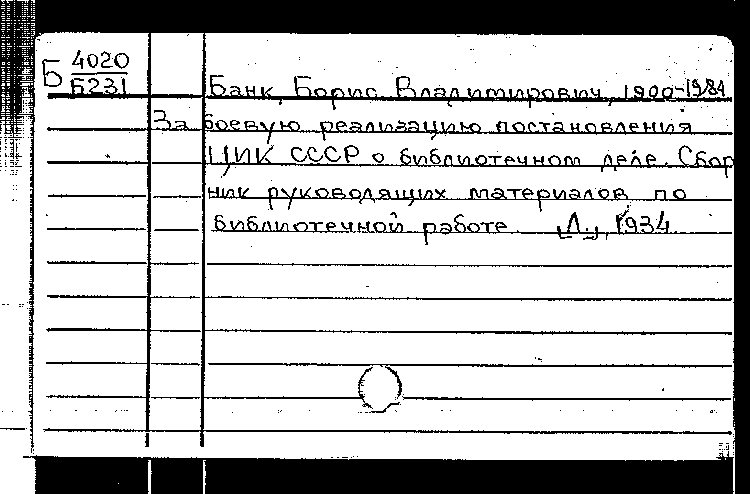 Б 4020
Б231
Банк, Борис Владимирович, 1900-1984
За боевую реализацию постановления
ЦИК СССР о библиотечном деле. Сбор
ник руководящих материалов по
библиотечной работе Л., 1934